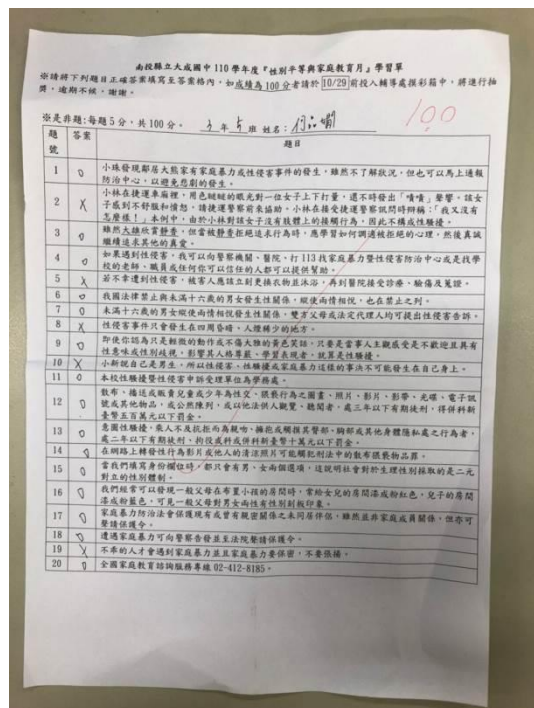 南投縣立大成國中 110 學年度『性別平等與家庭教育月』學習單
※請將下列題目正確答案填寫至答案格內，如成績為 100 分者請於 10/29 前投入輔導處摸彩箱中，將進行抽
獎，逾期不候，謝謝。
100
※是非題:每題 5 分，共 100 分。 3 年 5 班 姓名：
題號 答案 題目
1 O 小珠發現鄰居大熊家有家庭暴力或性侵害事件的發生，雖然不了解狀況，但也可以馬上通報
防治中心，以避免悲劇的發生。
2 X 小林在捷運車廂裡，用色瞇瞇的眼光對一位女子上下打量，還不時發出「嘖嘖」聲響，該女
子感到不舒服和憤怒，請捷運警察前來協助，小林在接受捷運警察訊問時辯稱：「我又沒有
怎麼樣！」本例中，由於小林對該女子沒有肢體上的接觸行為，因此不構成性騷擾。
3 O 雖然大雄欣賞靜香，但當被靜香拒絕追求行為時，應學習如何調適被拒絕的心理，然後真誠
繼續追求其他的真愛。
4 O 如果遇到性侵害，我可以向警察機關、醫院、打 113 找家庭暴力暨性侵害防治中心或是找學
校的老師、職員或任何你可以信任的人都可以提供幫助。
5 X 若不幸遭到性侵害，被害人應該立刻更換衣物並沐浴，再到醫院接受診療、驗傷及蒐證。
6 O 我國法律禁止與未滿十六歲的男女發生性關係，縱使兩情相悅，也在禁止之列。
7 O 未滿十六歲的男女縱使兩情相悅發生性關係，雙方父母或法定代理人均可提出性侵害告訴。
8 X 性侵害事件只會發生在四周昏暗、人煙稀少的地方。
9 O 即使你認為只是輕微的動作或不傷大雅的黃色笑話，只要是當事人主觀感受是不歡迎且具有
性意味或性別歧視，影響其人格尊嚴、學習表現者，就算是性騷擾。
10 X 小新說自己是男生，所以性侵害、性騷擾或家庭暴力這樣的事決不可能發生在自己身上。
11 O 本校性騷擾暨性侵害申訴受理單位為學務處。
12 O 散布、播送或販賣兒童或少年為性交、猥褻行為之圖畫、照片、影片、影帶、光碟、電子訊
號或其他物品，或公然陳列，或以他法供人觀覽、聽聞者，處三年以下有期徒刑，得併科新
臺幣五百萬元以下罰金。
13 O 意圖性騷擾，乘人不及抗拒而為親吻、擁抱或觸摸其臀部、胸部或其他身體隱私處之行為者，
處二年以下有期徒刑、拘役或科或併科新臺幣十萬元以下罰金。
14 O 在網路上轉發性行為影片或他人的清涼照片可能觸犯刑法中的散布猥褻物品罪。
15 O 當我們填寫身份欄位時，都只會有男、女兩個選項，這說明社會對於生理性別採取的是二元
對立的性別體制。
16 O 我們經常可以發現一般父母在布置小孩的房間時，常給女兒的房間漆成粉紅色，兒子的房間
漆成粉藍色，可見一般父母對男女兩性有性別刻板印象。
17 O 家庭暴力防治法會保護現有或曾有親密關係之未同居伴侶，雖然並非家庭成員關係，但亦可
聲請保護令。
18 O 遭遇家庭暴力可向警察告發並至法院聲請保護令。
19 X 不乖的人才會遇到家庭暴力並且家庭暴力要保密，不要張揚。
20 O 全國家庭教育諮詢服務專線 02-412-8185。